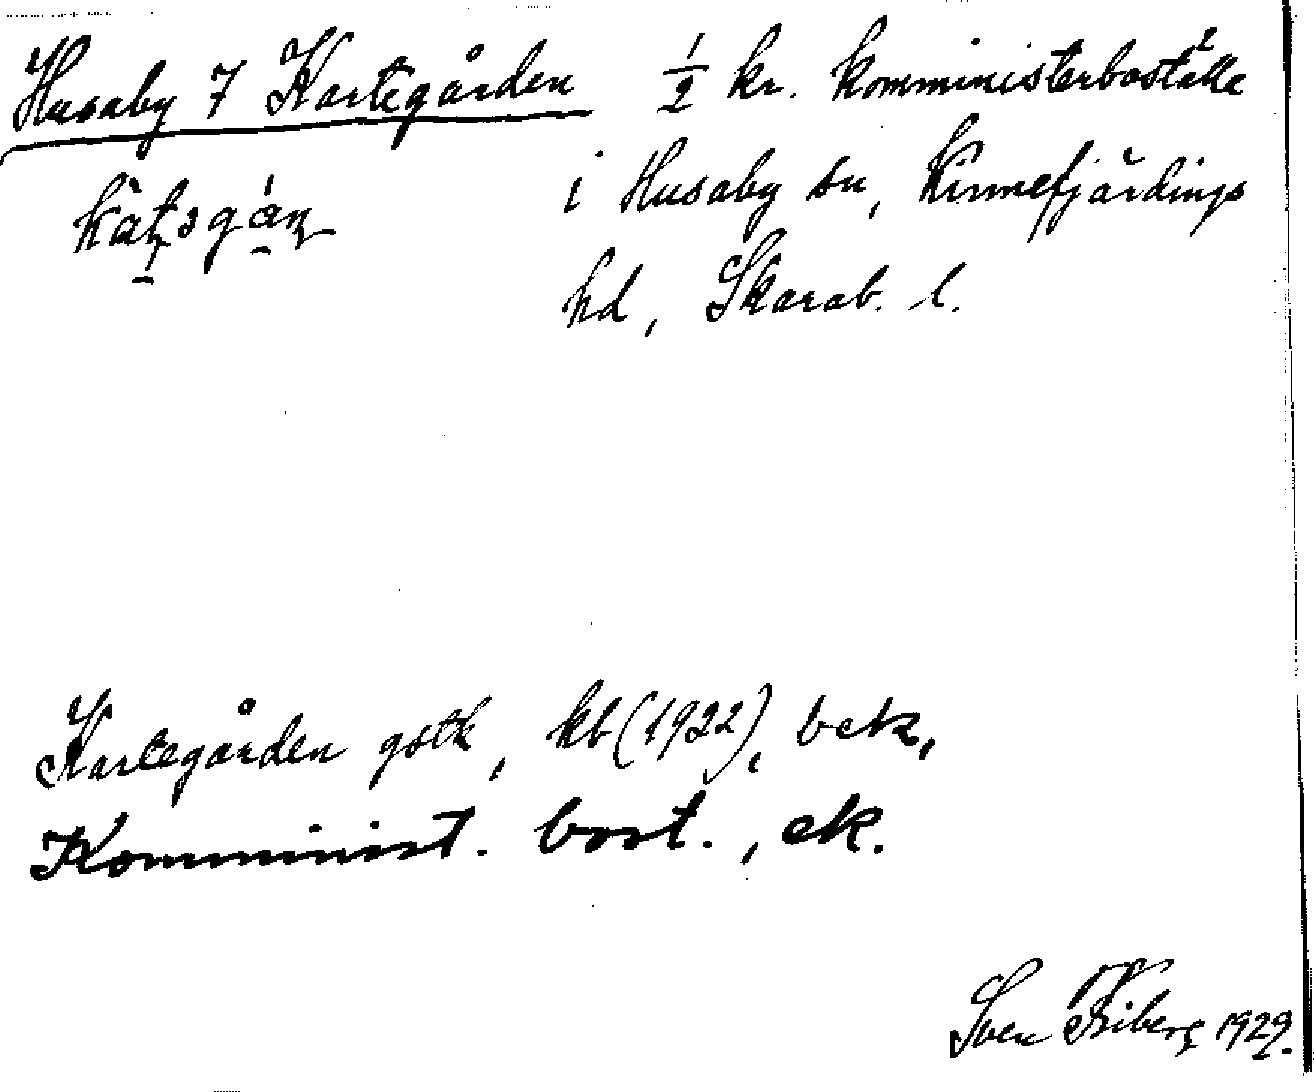 Husaby 7 Kartegården ½ kr. komministerboställe
i Husaby sn, Kinnefjärdings
hd, Skarab. l.
Kartegården gstk, kb (1922), bek,
Komminist. bost., ek.
Sven Friberg 1929.